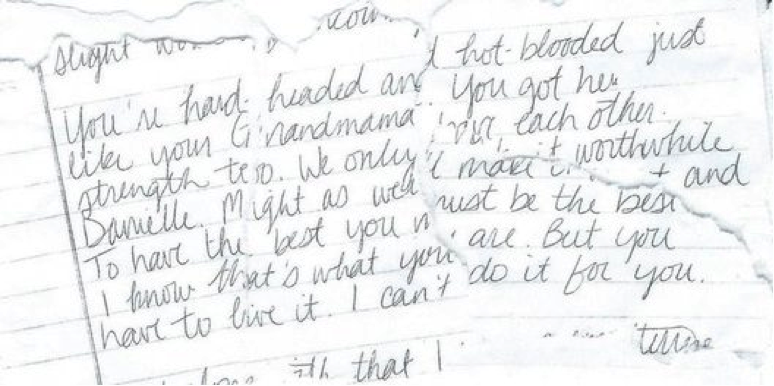 slight
You're hard-headed and hot-blooded just
like your Grandmama. You got her
strength too. We only each other.
Danielle. Might as well make it worthwhile
and
To have the best you must be the best
I know that's what you are. But you
have to live it. I can't do it for you.
that I